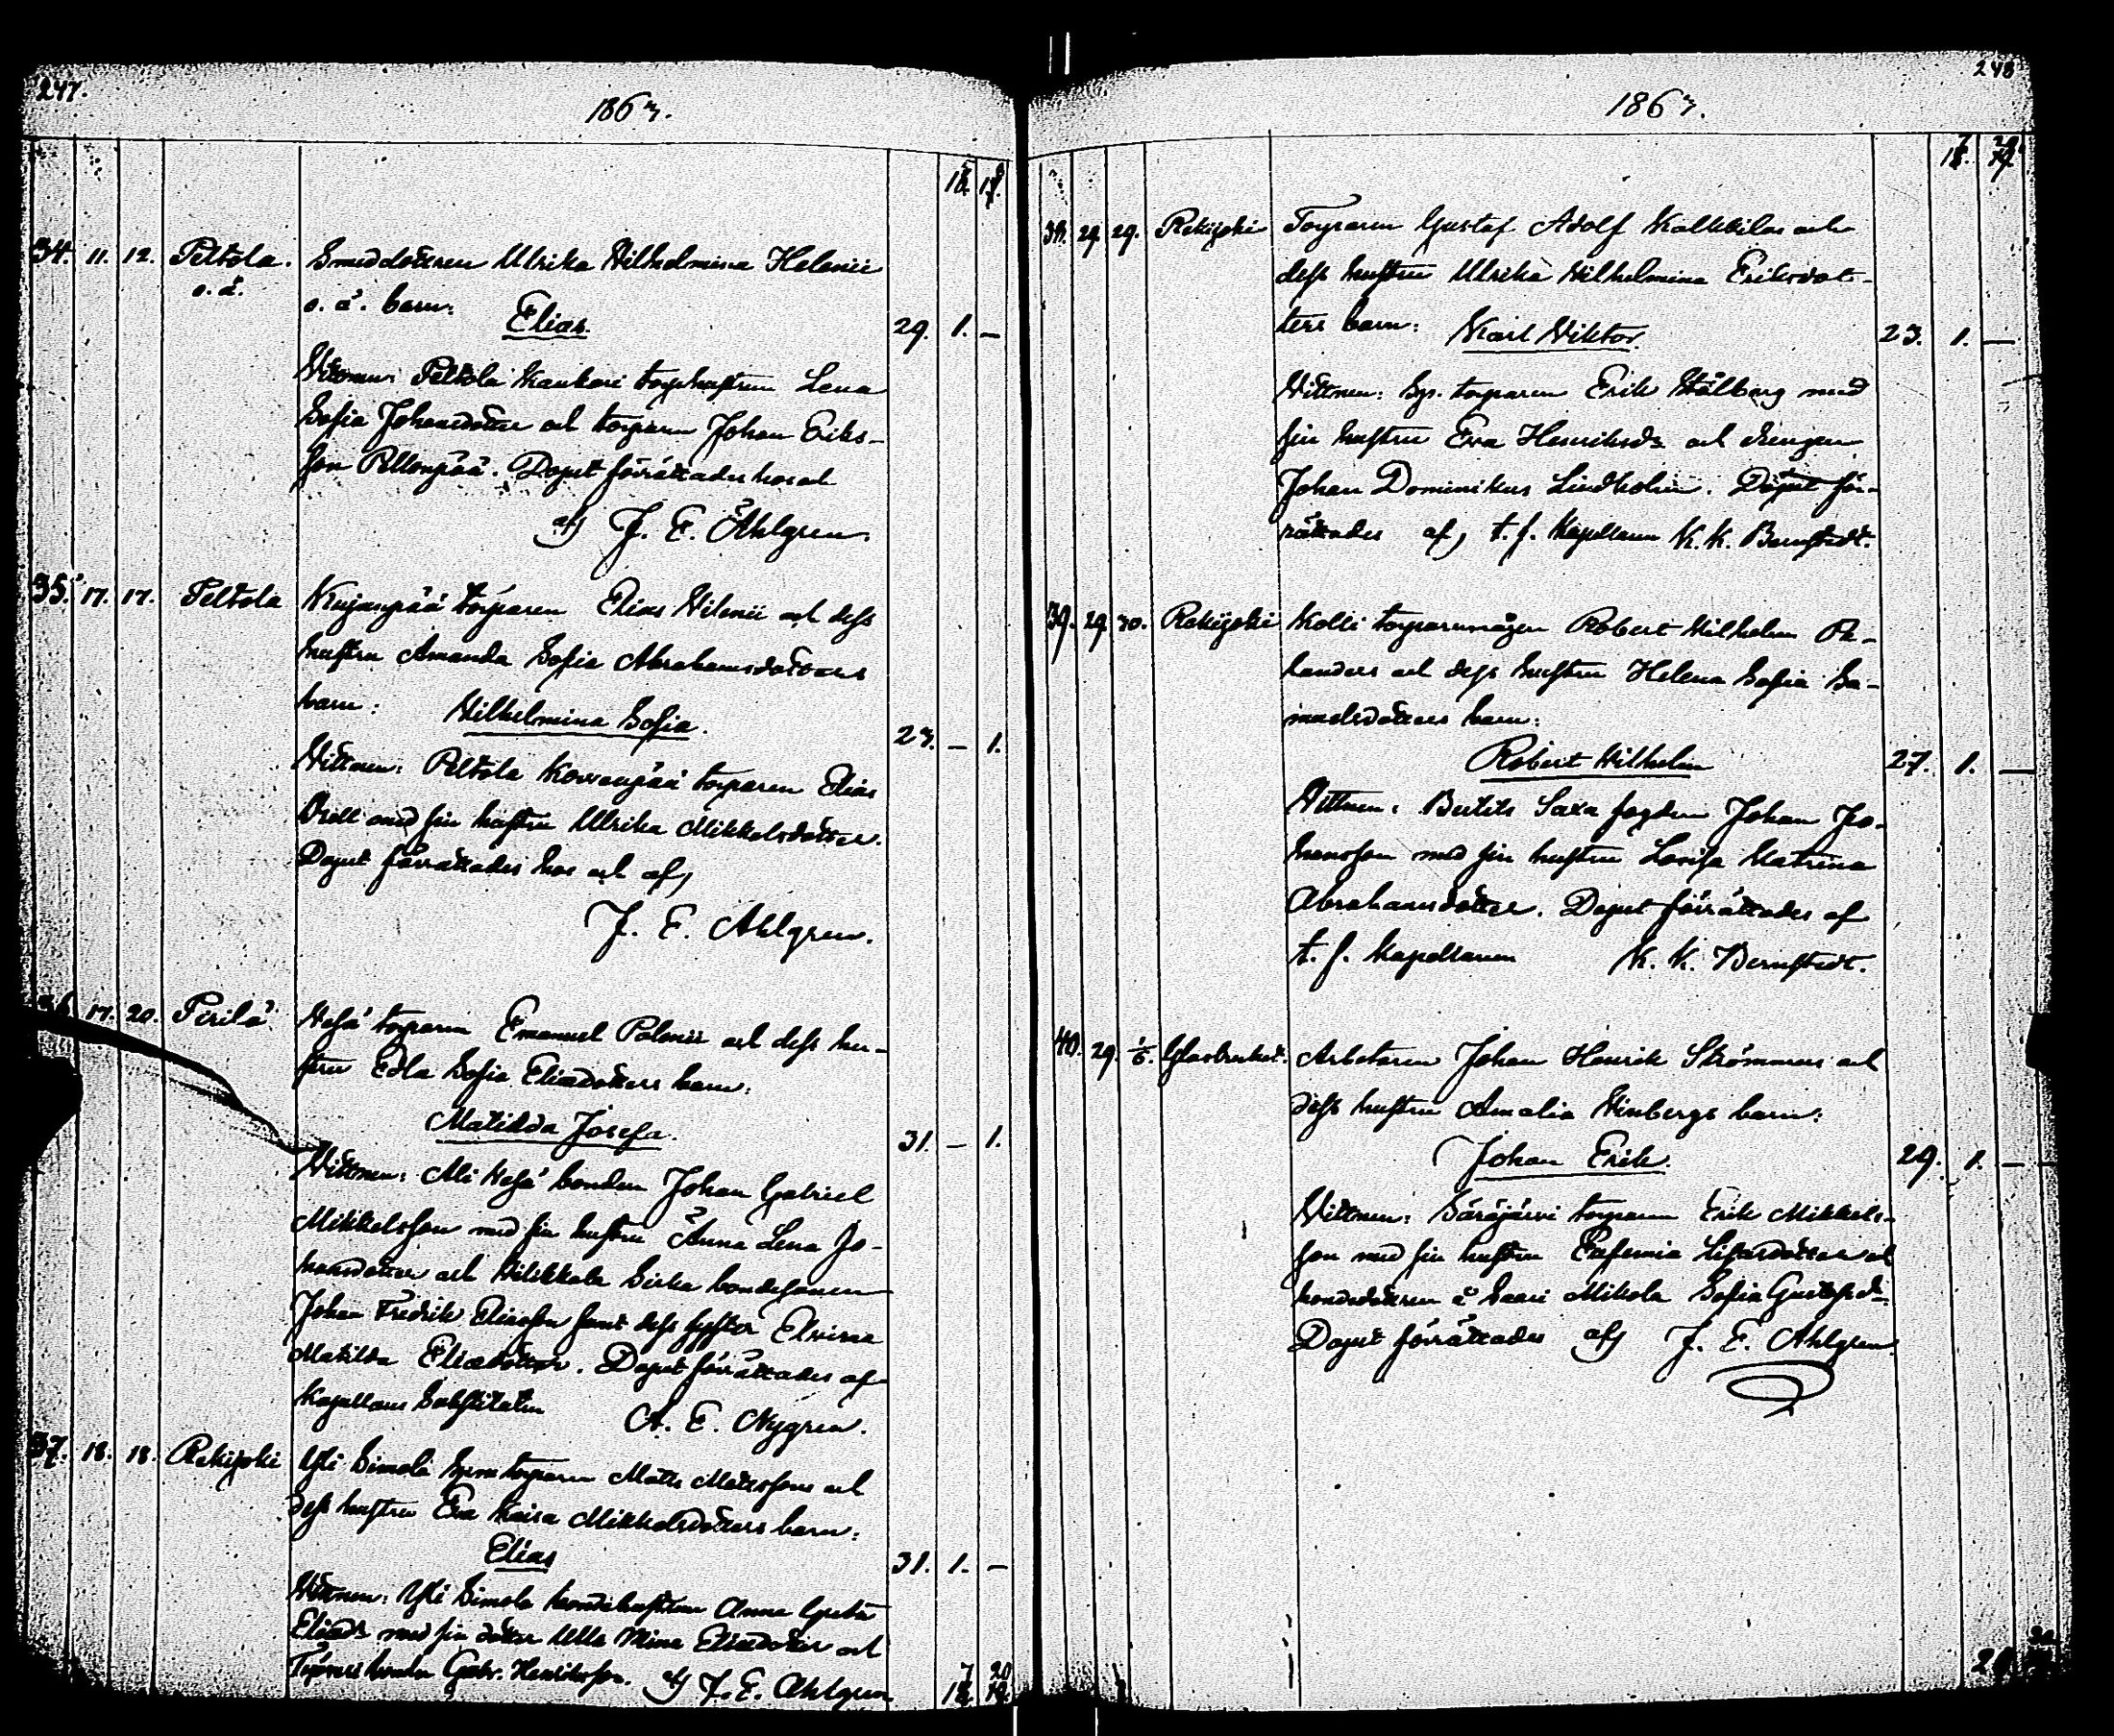 247.
1867.
34. 11. 12. Peltola. Smeddottren Ulrika Wilhelmina Helenii
o. ä. o. ä. barn:
Elias. 29. 1. —
Vittnen: Peltola Kankari torp hustrun Lena
Sofia Johansdotter och torparen Johan Eriks-
son Pellonpää. Dopet förrättades hos och
af J. E. Ahlgren.
35. 17. 17. Peltola Kujanpää torparen Elias Vilenii och dess
hustru Amanda Sofia Abrahamsdotters
barn: Wilhelmina Sofia. 27. — 1.
Vittnen: Peltola torparen Elias
med sin hustru Ulrika Mikkelsdotter.
Dopet förrättades hos och af
J. E. Ahlgren.
36. 17. 20. Perilä. torparen Emanuel Palenii och dess hu-
stru Edla Sofia Eliædotters barn:
Matilda Josefa. 31. — 1.
Vittnen: bonden Johan Gabriel
Mikkelsson med sin hustru Anna Lena Jo-
hansdotter och bondesonen
Johan Fredrik Eliasson samt dess syster Elvira
Matilda Eliædotter. Dopet förrättades af
Kapellans Substituten A. E. Nygren.
37. 18. 18. Rekijoki Yli Simola torparen Matts Mattssons och
dess hustru Eva Kaisa Mikkelsdotters barn:
Elias 31. 1. —
Vittnen: Yli Simola bondehustrun Anna Greta
Eliæd:r med sin dotter Ulla Mina Eliædotter och
Gabr. Henriksson. af J. E. Ahlgren
7 20
248
1867.
38. 29. 29. Rekijoki Torparen Gustaf Adolf Kallkilas och
dess hustru Ulrika Wilhelmina Eriksdot-
ters barn: Karl Viktor. 23. 1. —
Vittnen: torparen Erik Stålberg med
sin hustru Eva Henriksd:r och drengen
Johan Dominikus Lindholm. Dopet för-
rättades af t. f. Kapellanen K. K. Bernstedt.
39. 29. 30. Rekijoki Kolli torparmågen Robert Wilhelm
och dess hustru Helena Sofia Sa-
muelsdotters barn:
Robert Wilhelm 27. 1. —
Vittnen: Saxa fogden Johan Jo-
hansson med sin hustru Lovisa Katrina
Abrahamsdotter. Dopet förrättades af
t. f. Kapellanen K. K. Bernstedt.
40. 29. 1/6. Glasbruket. Arbetaren Johan Henrik Strömmers och
dess hustru Amalia Vinbergs barn:
Johan Erik. 29. 1. —
Vittnen: Särsjärvi torparen Erik Mikkels-
son med sin hustru Eufemia och
bondedottren å Saari Mikola Sofia Gustafsd:r.
Dopet förrättades af J. E. Ahlgren